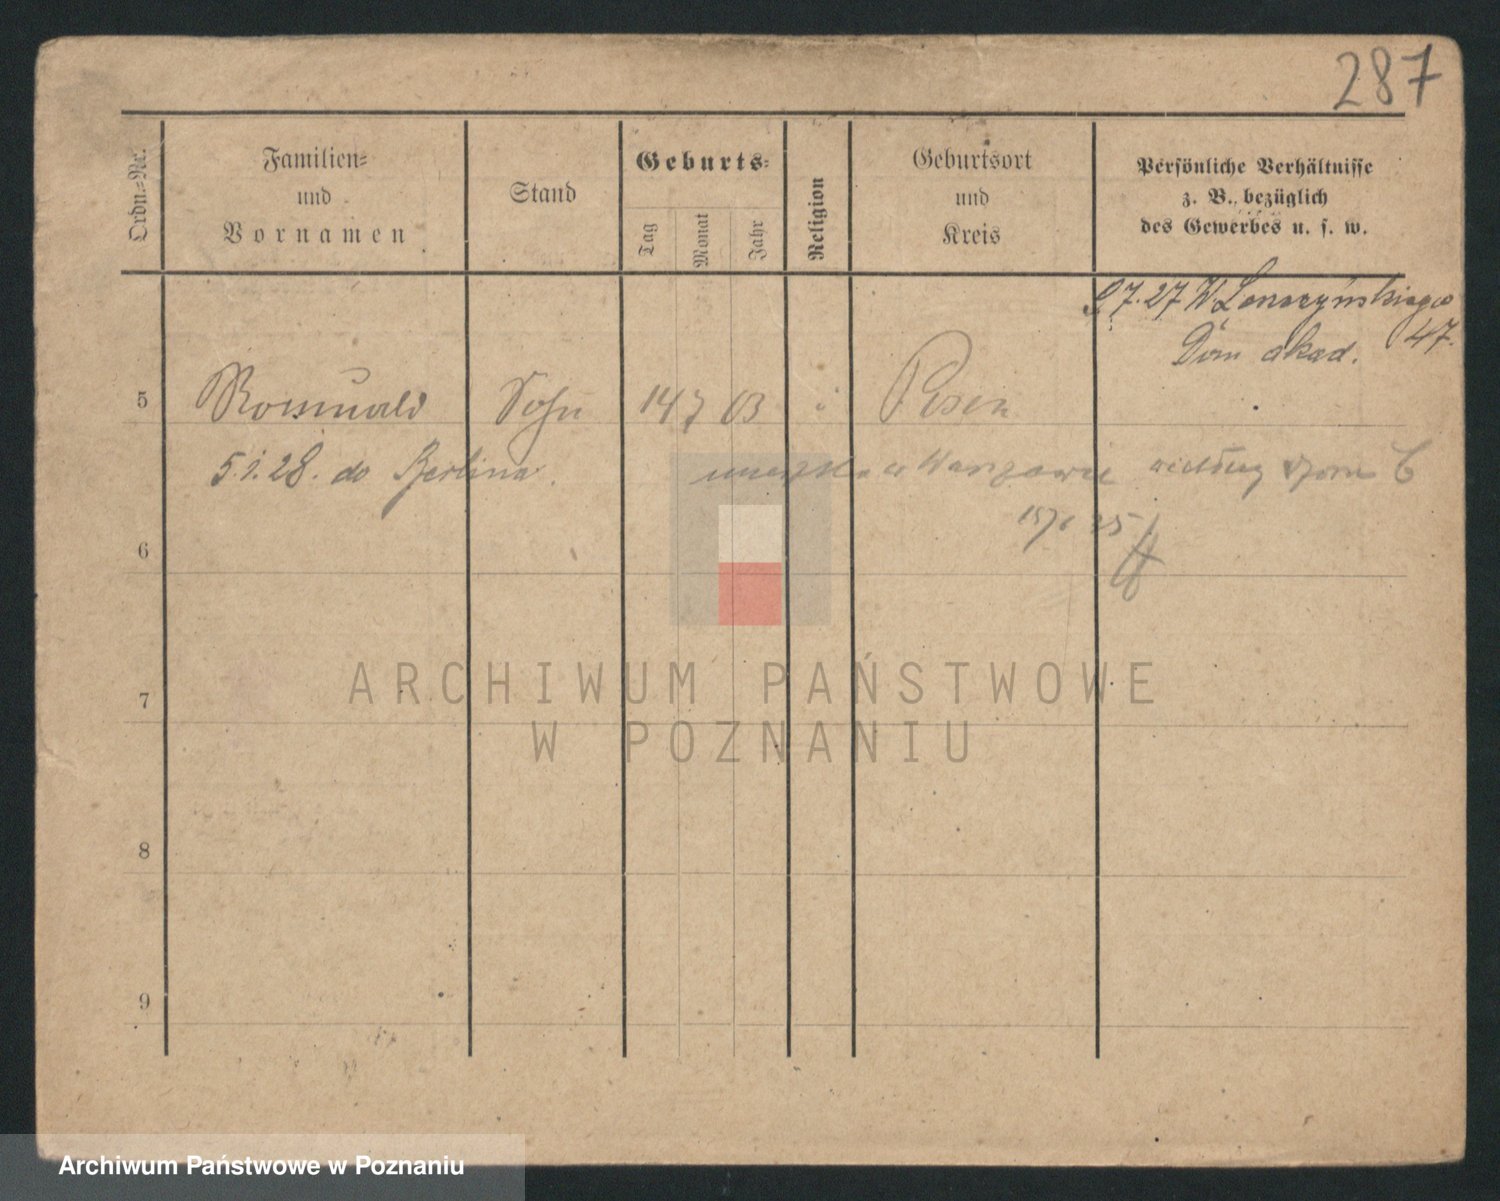 287
Ordn.=Nr.
Familien=
und
Vornamen
Stand
Geburts=
Tag
Monat
Jahr
Religion
Geburtsort
und
Kreis
Persönliche Verhältnisse
z. B. bezüglich
des Gewerbes u. s. w.
7.27 W.
47.
Dom akad.
5 Romuald Sohn 14 7 03 " Posen
5.1.28. do Berlina.
w Warszawie
6
7
8
9
ARCHIWUM PAŃSTWOWE
W POZNANIU
Archiwum Państwowe w Poznaniu